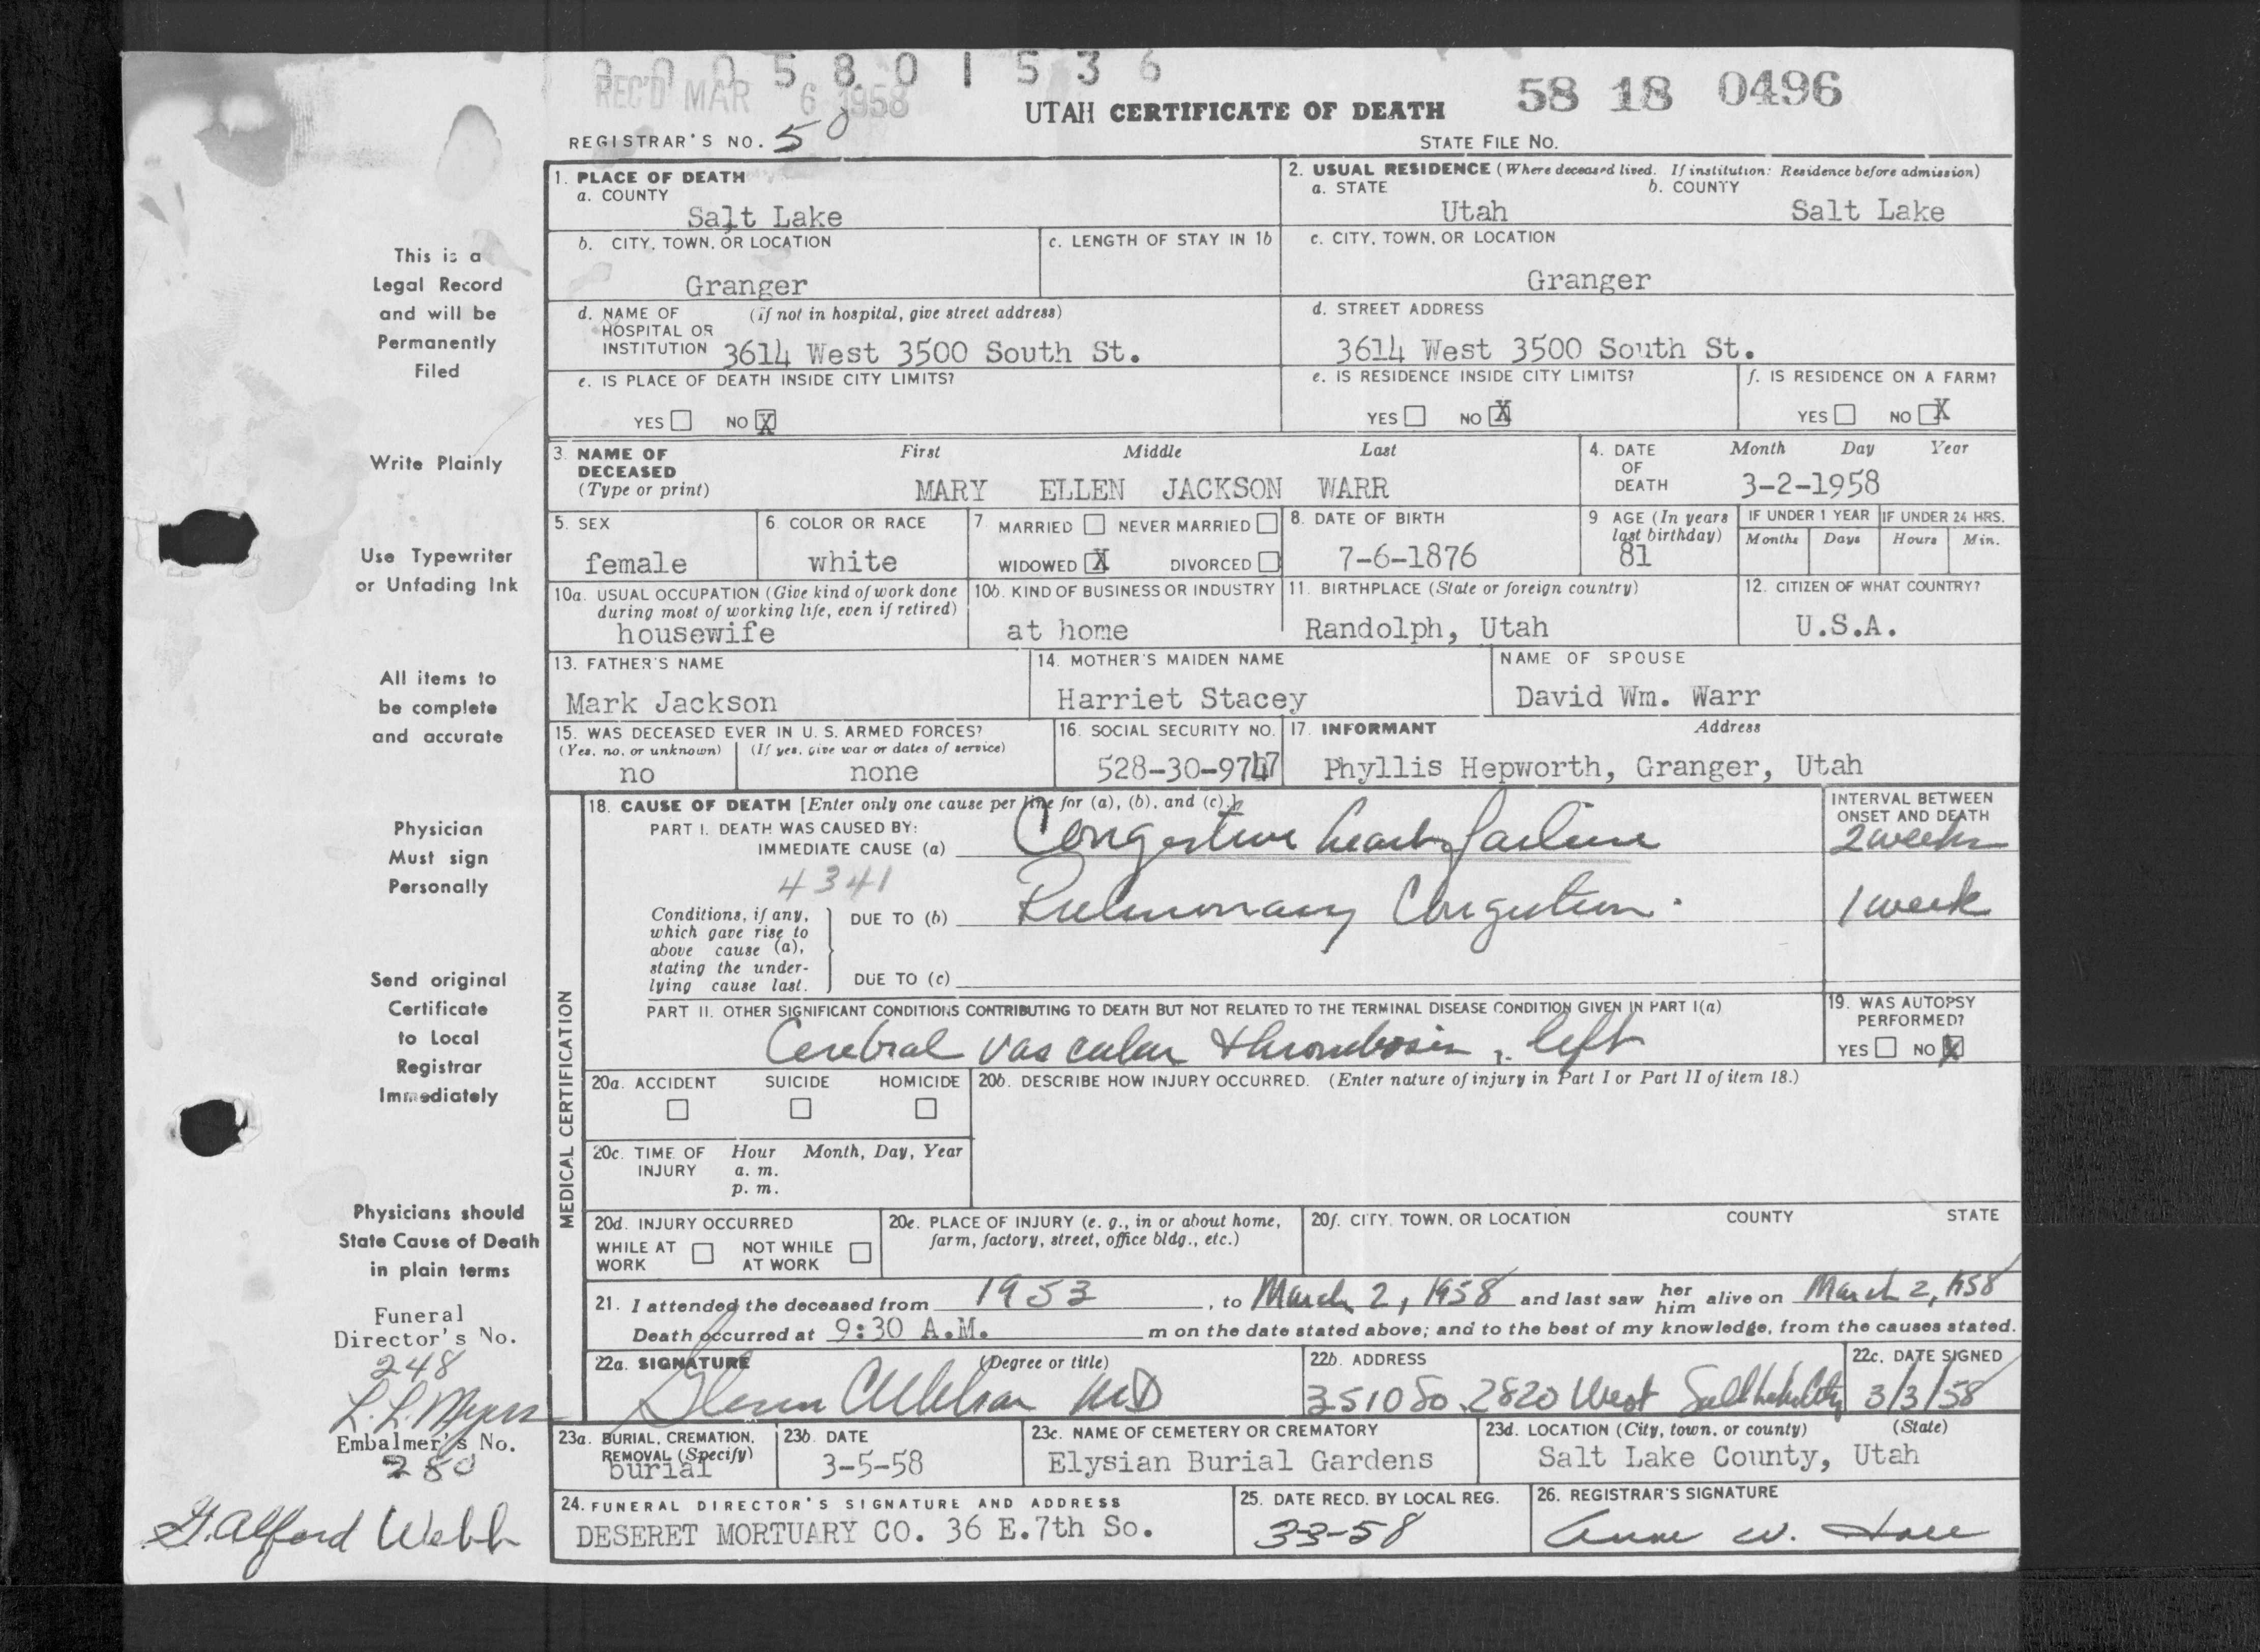 0 0 0 5 8 0 1 5 3 6
REC'D MAR 6 1958
58 18 0496
UTAH CERTIFICATE OF DEATH
REGISTRAR'S NO. 50
STATE FILE NO.
1. PLACE OF DEATH
a. COUNTY
Salt Lake
2. USUAL RESIDENCE (Where deceased lived. If institution: Residence before admission)
a. STATE b. COUNTY
Utah Salt Lake
b. CITY, TOWN, OR LOCATION
Granger
c. LENGTH OF STAY IN 1b
c. CITY, TOWN, OR LOCATION
Granger
d. NAME OF (If not in hospital, give street address)
HOSPITAL OR
INSTITUTION 3614 West 3500 South St.
d. STREET ADDRESS
3614 West 3500 South St.
e. IS PLACE OF DEATH INSIDE CITY LIMITS?
YES NO X
e. IS RESIDENCE INSIDE CITY LIMITS?
YES NO X
f. IS RESIDENCE ON A FARM?
YES NO X
3. NAME OF
DECEASED
(Type or print)
First Middle Last
MARY ELLEN JACKSON WARR
4. DATE
OF
DEATH
Month Day Year
3-2-1958
5. SEX
female
6. COLOR OR RACE
white
7. MARRIED NEVER MARRIED
WIDOWED X DIVORCED
8. DATE OF BIRTH
7-6-1876
9 AGE (In years
last birthday)
81
IF UNDER 1 YEAR
Months Days
IF UNDER 24 HRS.
Hours Min.
10a. USUAL OCCUPATION (Give kind of work done
during most of working life, even if retired)
housewife
10b. KIND OF BUSINESS OR INDUSTRY
at home
11. BIRTHPLACE (State or foreign country)
Randolph, Utah
12. CITIZEN OF WHAT COUNTRY?
U.S.A.
13. FATHER'S NAME
Mark Jackson
14. MOTHER'S MAIDEN NAME
Harriet Stacey
NAME OF SPOUSE
David Wm. Warr
15. WAS DECEASED EVER IN U. S. ARMED FORCES?
(Yes, no, or unknown) (If yes, give war or dates of service)
no none
16. SOCIAL SECURITY NO.
528-30-9747
17. INFORMANT Address
Phyllis Hepworth, Granger, Utah
MEDICAL CERTIFICATION
18. CAUSE OF DEATH [Enter only one cause per line for (a), (b), and (c).]
PART I. DEATH WAS CAUSED BY:
IMMEDIATE CAUSE (a) Congestive heart failure
INTERVAL BETWEEN
ONSET AND DEATH
2 weeks
4341
Conditions, if any,
which gave rise to
above cause (a),
stating the under-
lying cause last.
DUE TO (b) Pulmonary Congestion.
1 week
DUE TO (c)
PART II. OTHER SIGNIFICANT CONDITIONS CONTRIBUTING TO DEATH BUT NOT RELATED TO THE TERMINAL DISEASE CONDITION GIVEN IN PART I(a)
Cerebral vascular thrombosis, left
19. WAS AUTOPSY
PERFORMED?
YES NO X
20a. ACCIDENT SUICIDE HOMICIDE
20b. DESCRIBE HOW INJURY OCCURRED. (Enter nature of injury in Part I or Part II of item 18.)
20c. TIME OF Hour Month, Day, Year
INJURY a. m.
p. m.
20d. INJURY OCCURRED
WHILE AT NOT WHILE
WORK AT WORK
20e. PLACE OF INJURY (e. g., in or about home,
farm, factory, street, office bldg., etc.)
20f. CITY, TOWN, OR LOCATION COUNTY STATE
21. I attended the deceased from 1953, to March 2, 1958 and last saw her him alive on March 2, 1958
Death occurred at 9:30 A.M. m on the date stated above; and to the best of my knowledge, from the causes stated.
22a. SIGNATURE (Degree or title)
Glenn MD
22b. ADDRESS
3510 So. 2820 West Salt Lake City
22c. DATE SIGNED
3/3/58
23a. BURIAL, CREMATION,
REMOVAL (Specify)
burial
23b. DATE
3-5-58
23c. NAME OF CEMETERY OR CREMATORY
Elysian Burial Gardens
23d. LOCATION (City, town, or county) (State)
Salt Lake County, Utah
24. FUNERAL DIRECTOR'S SIGNATURE AND ADDRESS
DESERET MORTUARY CO. 36 E.7th So.
25. DATE RECD. BY LOCAL REG.
3-3-58
26. REGISTRAR'S SIGNATURE
Anne W.
This is a
Legal Record
and will be
Permanently
Filed
Write Plainly
Use Typewriter
or Unfading Ink
All items to
be complete
and accurate
Physician
Must sign
Personally
Send original
Certificate
to Local
Registrar
Immediately
Physicians should
State Cause of Death
in plain terms
Funeral
Director's No.
248
L. L. Myers
Embalmer's No.
280
G. Alford Webb